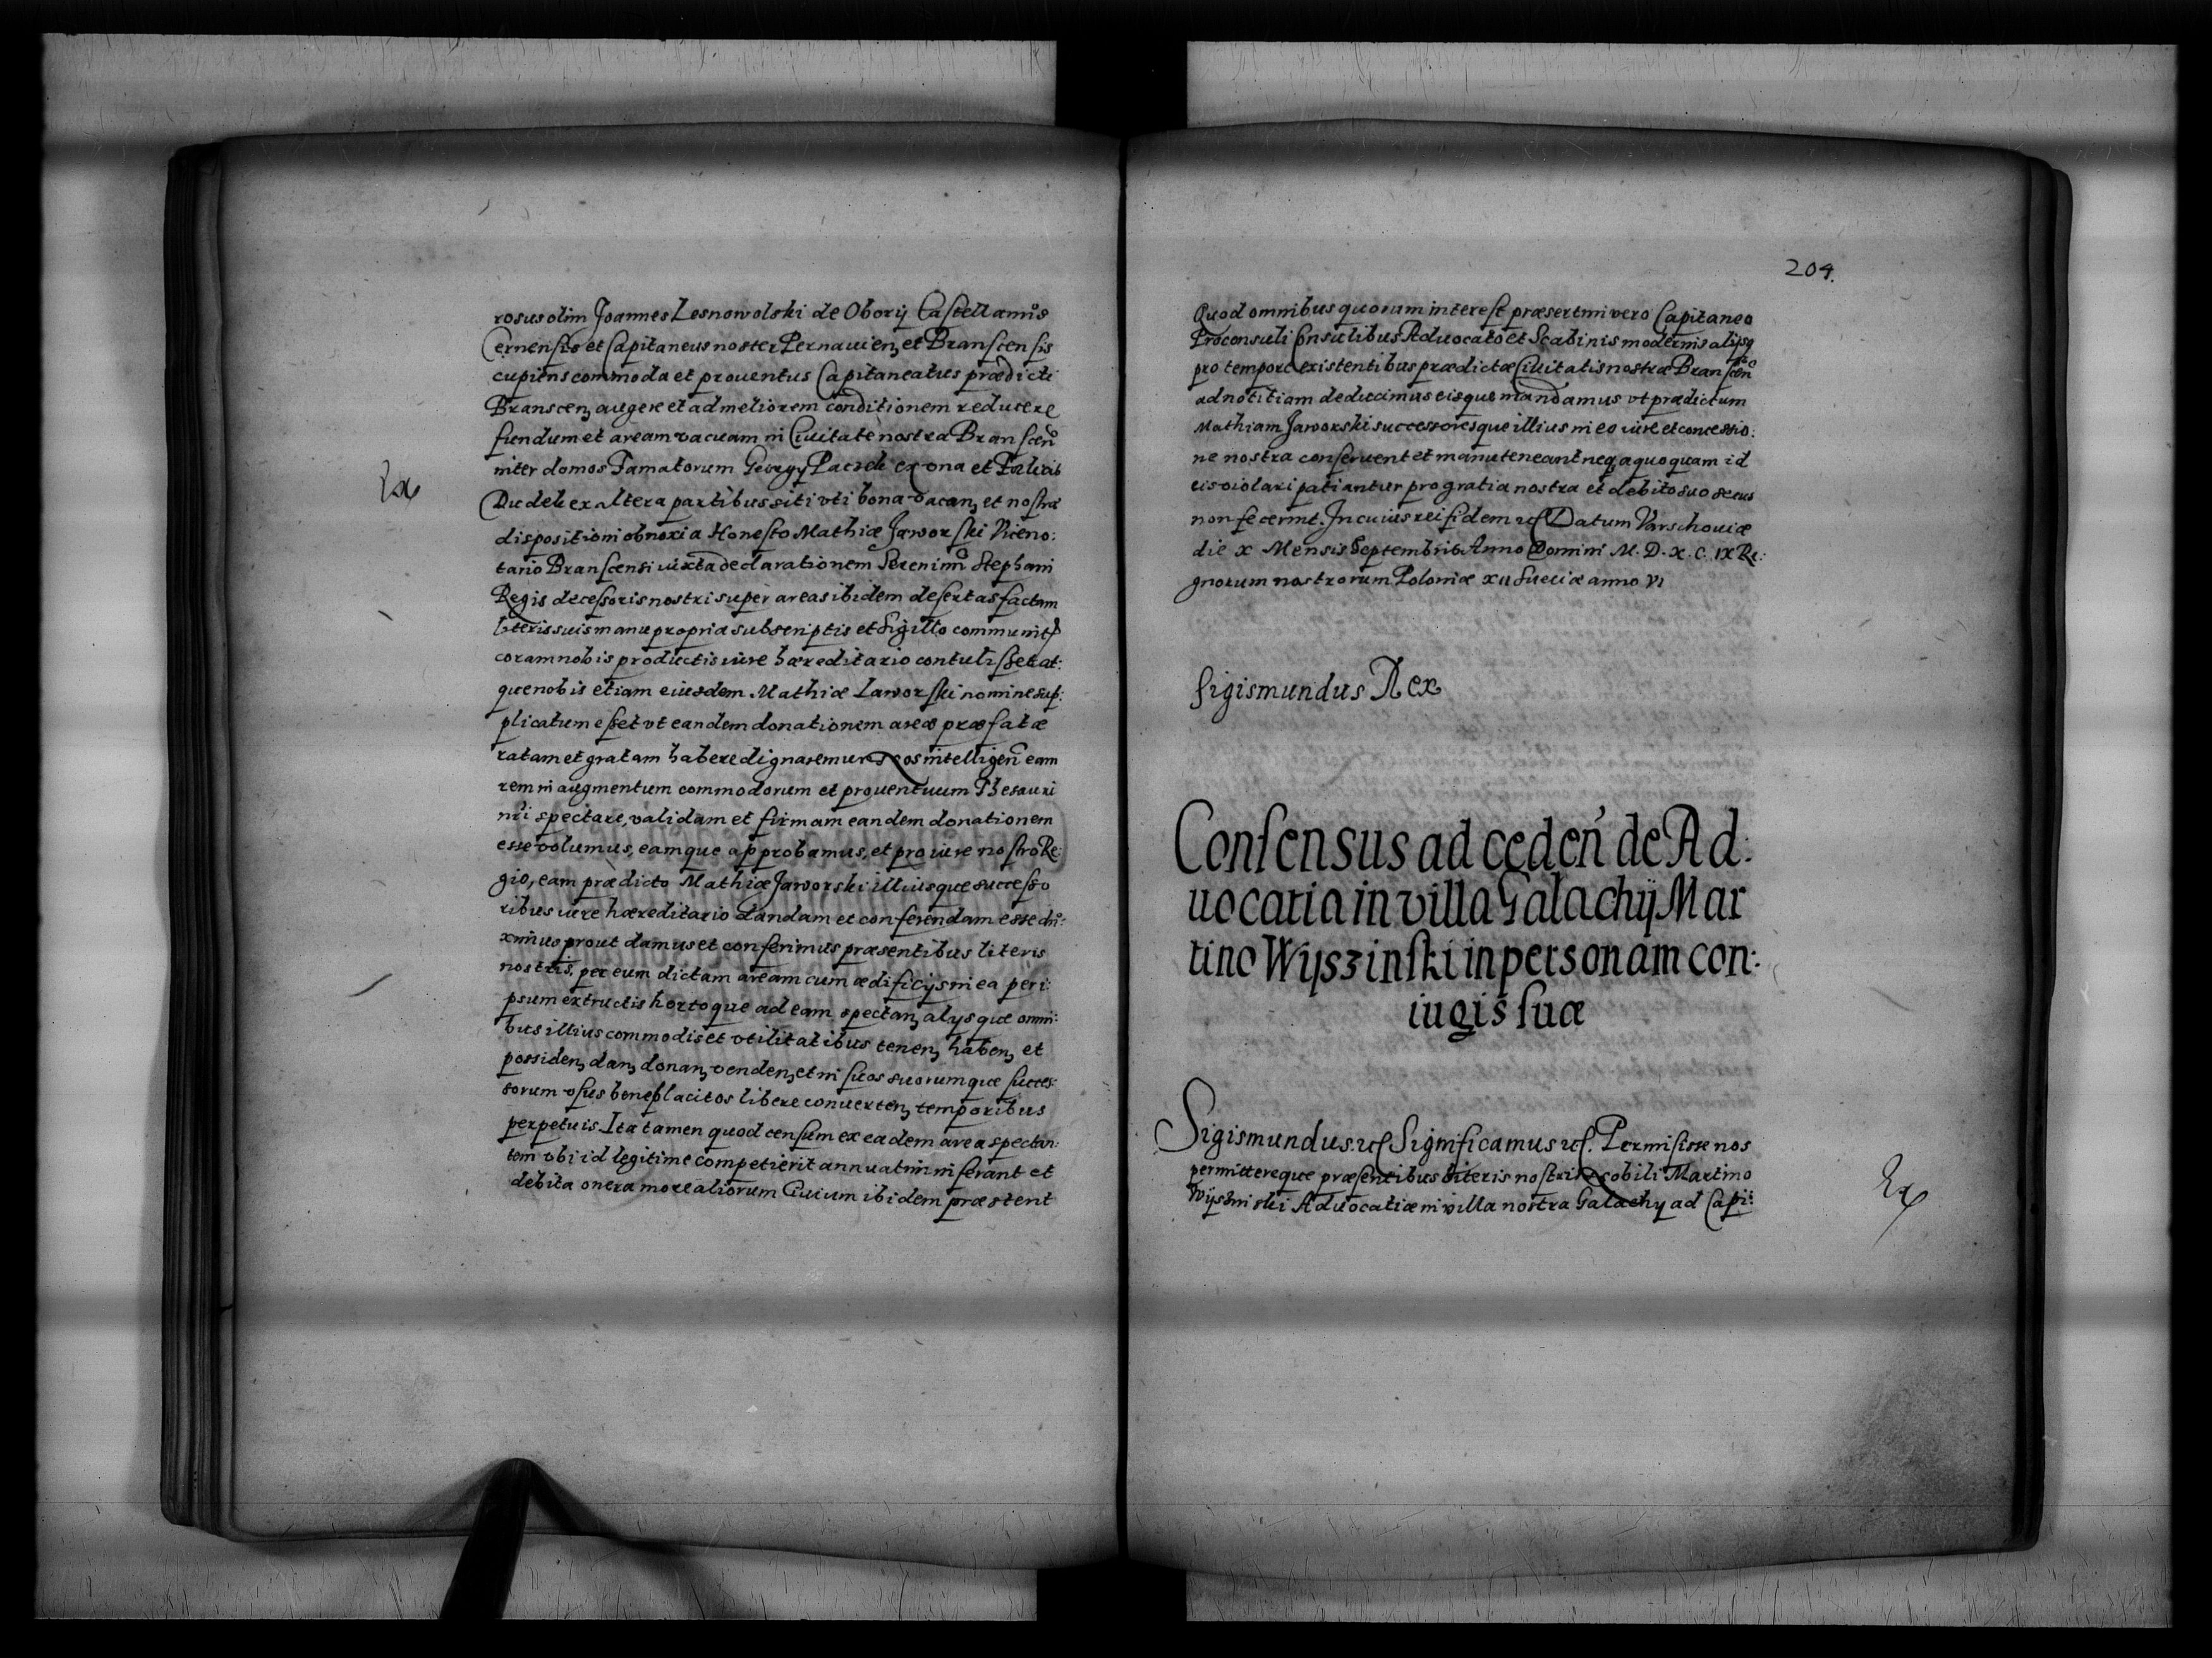 rosus olim Joannes Lesnowolski de Oborÿ Castellanus
Cernensis et Capitaneus noster Pernauien, et Branscensis
cupiens commoda et prouentus Capitaneatus prædicti
Branscen, augere et ad meliorem conditionem reducere
fundum et aream vacuam in Ciuitate nostra Branscen
inter domos Famatorum Georgy Paczek ex vna et
Dudek ex altera partibus siti vti bona vacan, et nostræ
dispositioni obnoxia Honesto Mathiæ Jaworski Viceno:
tario Branscensi iuxta declarationem Serenimi Stephani
Regis decessoris nostri super areas ibidem desertas factam
literis suis manu propria subscriptis et Sigillo communit,
coram nobis productis iure hæreditario contulisset at:
que nobis etiam eiusdem Mathiæ Iaworski nomine sup:
plicatum esset vt eandem donationem areæ præfatæ
ratam et gratam habere dignaremur nos intelligen eam
rem in augmentum commodorum et prouentuum Thesauri
nri spectare, validam et firmam eandem donationem
esse volumus, eamque approbamus, et pro iure nostro Re
gio, eam prædicto Mathiæ Jaworski illiusque successo
ribus iure hæreditario dandam et conferendam esse du:
ximus prout damus et conferimus præsentibus literis
nostris, per eum dictam aream cum ædificijs in ea per i
psum extructis hortoque ad eam spectan, alysque omni:
bus illius commodis et vtilitatibus tenen, haben, et
possiden, dan, donan, venden, et in suos suorumque succes:
sorum vsus beneplacitos libere conuerten, temporibus
perpetuis. Ita tamen quod censum ex eadem area spectan:
tem vbi id legitime competierit annuatim inferant et
debita onera more aliorum Ciuium ibidem præstent
Ex
204.
Quod omnibus quorum interest præsertim vero Capitaneo
Proconsuli Consulibus Aduocato et Scabinis modernis alijsq
pro tempore existentibus prædictæ Ciuitatis nostræ Branscen
ad notitiam deducimus eisque mandamus vt prædictum
Mathiam Jaworski successoresque illius in eo iure et concessio:
ne nostra conseruent et manuteneant neq, a quoquam id
eis violari patiantur pro gratia nostra et debito suo secus
non fecerint. In cuius rei fidem etc Datum Varschouiæ
die x Mensis Septembris Anno Domini M. D. X. C. IX Re:
gnorum nostrorum Poloniæ XII Sueciæ anno VI
Sigismundus Rex
Consensus ad ceden de Ad:
uocatia in villa Galachÿ Mar
tino Wÿszinski in personam con:
iugis suæ
Sigismundus. etc Significamus etc. Permisisse nos
permittereque præsentibus literis nostris Nobili Martino
Wÿszinski Aduocatiæ in villa nostra Galachy ad Capi:
Ex